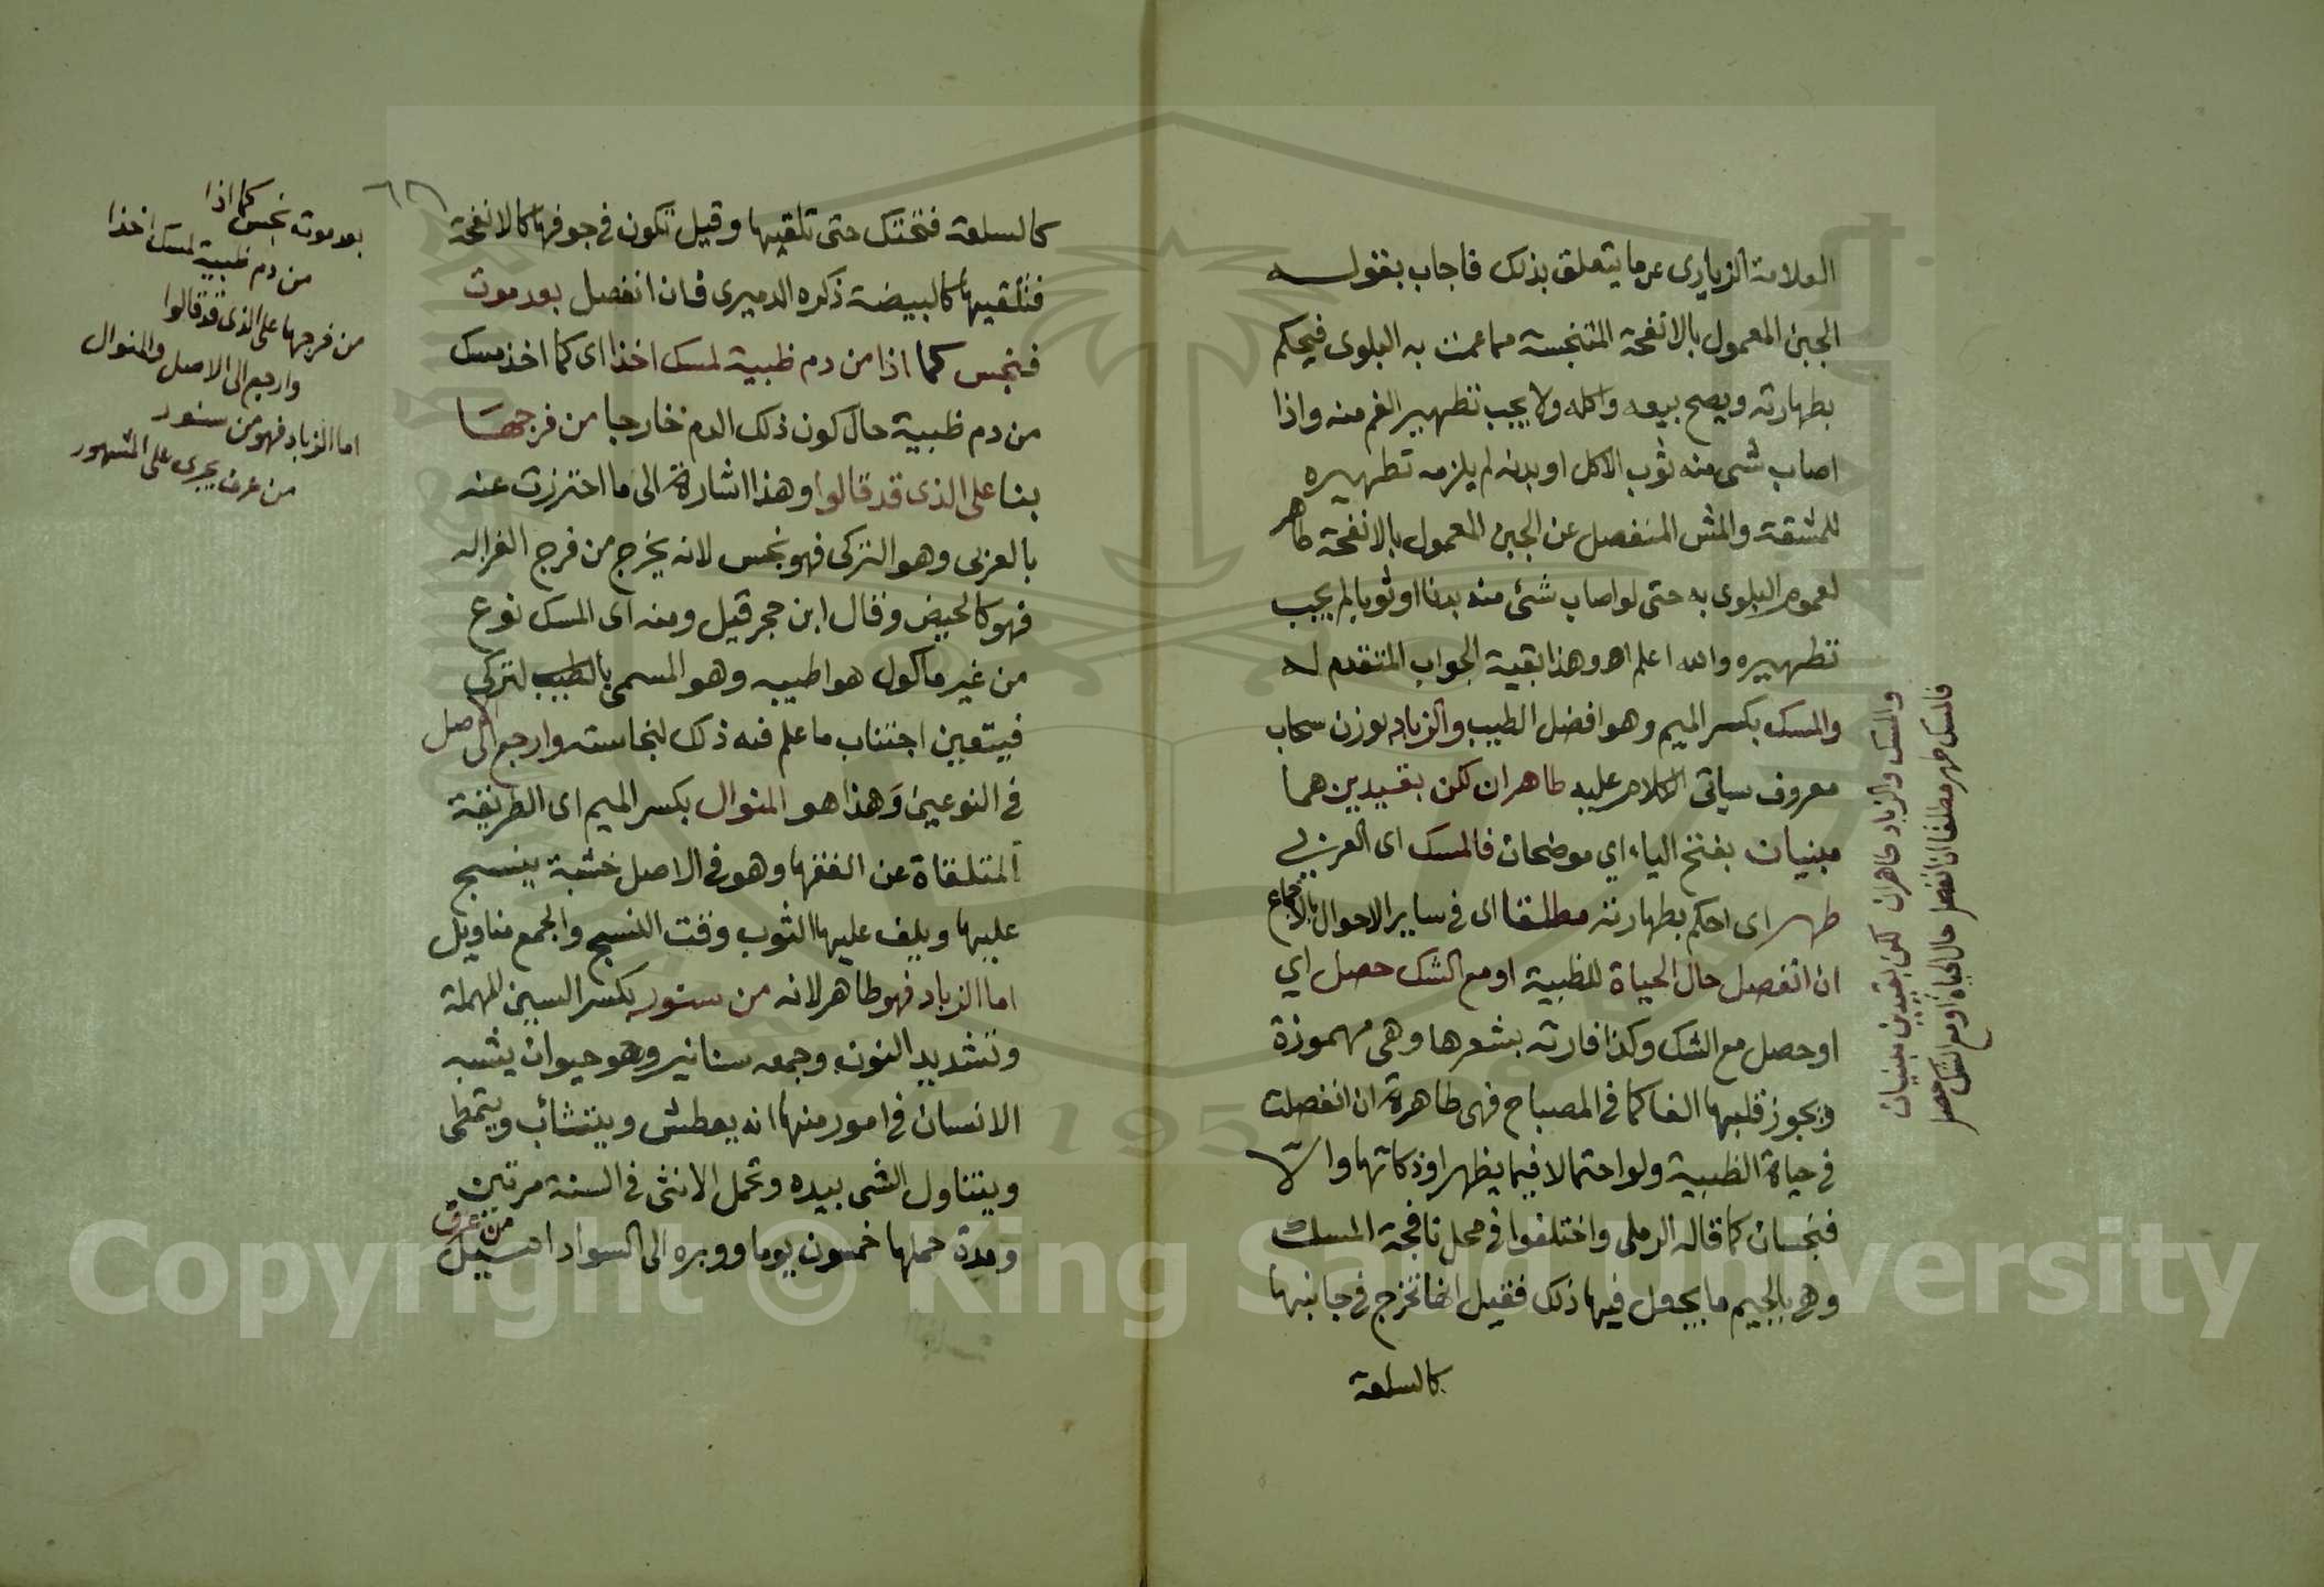 العلامة الزيادى عن ما يتعلق بذلك فاجاب بقوله
الجبن المعمول بالانفحة المتنجسة مما عمت به البلوى فيحكم
بطهارته ويصح بيعه واكله ولا يجب تطهير الفم منه واذا
اصاب شى منه ثوب الاكل او بدنه لم يلزمه تطهيره
للمشقة والمش المنفصل عن الجبن المعمول بالانفحة طاهر
لعموم البلوى به حتى لو اصاب شئ منه بدنا او ثوبا لم يجب
تطهيره والله اعلم اه وهذا بقية الجواب المتقدم له
والمسك بكسر الميم وهو افضل الطيب والزباد بوزن سحاب
معروف سياتى الكلام عليه طاهران لكن بقيدين هما
مبنيان بفتح الياء اي موضحان فالمسك اى العربي
طهر اى احكم بطهارته مطلقا اى في ساير الاحوال بالاجماع
ان انفصل حال الحياة للظبية او مع الشك حصل اي
او حصل مع الشك وكذا فارته بشعرها وهى مهموزة
ويجوز قلبها الفا كما في المصباح فهى طاهرة ان انفصلت
في حياة الظبية ولو احتمالا فيما يظهر او ذكاتها والا
فنجسان كما قاله الرملى واختلفوا في محل نافجة المسك
وهى بالجيم ما يجعل فيها ذلك فقيل انها تخرج في جانبها
كالسلعة
والمسك والزباد طاهران لكن بقيدين مبنيان
فالمسك طهر مطلقا ان انفصل حال الحياة او مع الشك حصل
كالسلعة فتحتك حتى تلقيها وقيل تكون في جوفها كالانفحة
فتلقيها كالبيضة ذكره الدميرى فان انفصل بعد موت
فنجس كما اذا من دم ظبية لمسك اخذا اى كما اخذ مسك
من دم ظبية حال كون ذلك الدم خارجا من فرجها
بنا على الذى قد قالوا وهذا اشارة الى ما احترزت عنه
بالعربى وهو التركى فهو نجس لانه يخرج من فرج الغزاله
فهو كالحيض وقال ابن حجر قيل ومنه اى المسك نوع
من غير ماكول هو اطيبه وهو المسمى بالطيب لتركى
فيتعين اجتناب ما علم فنه ذلك لنجاسته وارجع الى الاصل
في النوعين وهذا هو المنوال بكسر الميم اى الطريقة
المتلقاة عن الفقها وهو في الاصل خشبة ينسج
عليها ويلف عليها الثوب وقت النسج والجمع مناويل
اما الزباد فهو طاهر لانه من سنور بكسر السين المهملة
وتشديد النون وجمعه سنانير وهو حيوان يشبه
الانسان في امور منها انه يعطش ويتشائب ويتمطى
ويتناول الشى بيده وتحمل الانثى في السنة مرتين
ومدة حملها خمسون يوما ووبره الى السواد اميل من عرق
٦٢
بعد موته نجس كما اذا
من دم ظبية لمسك اخذا
من فرجها على الذى قد قالوا
وارجع الى الاصل والمنوال
اما الزباد فهو من سنور
من عرف يجرى على المشهور
Copyright © King Saud University
1957